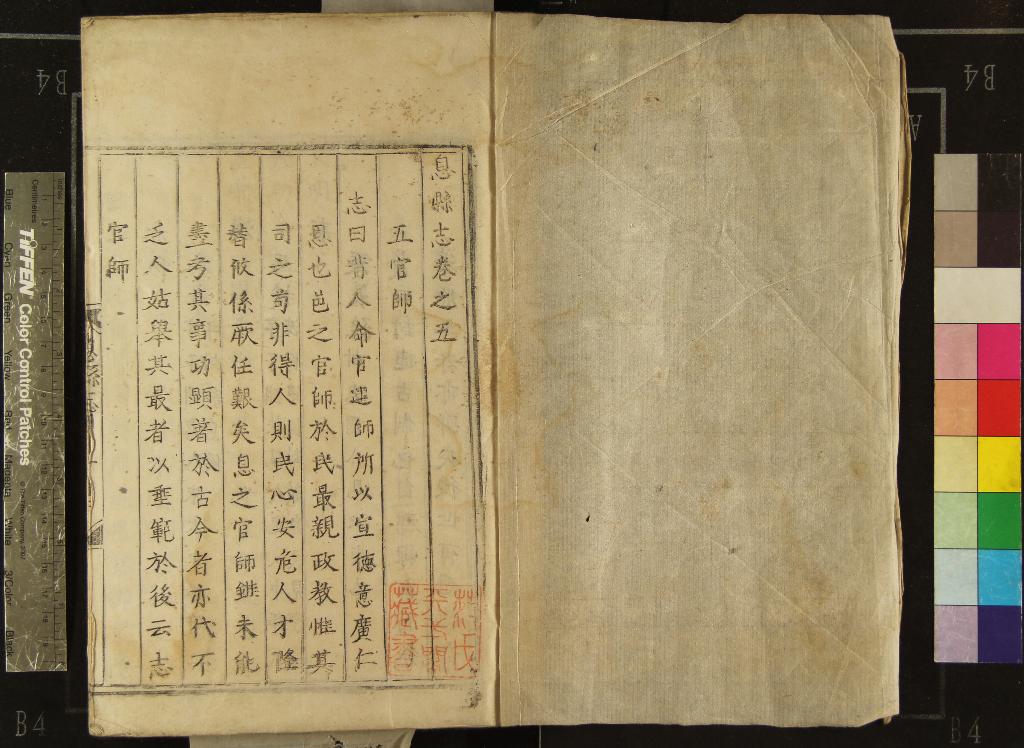 息縣志卷之五
五官師
志曰昔人命官建師所以宣德意廣仁
恩也邑之官師於民最親政教惟其
司之苟非得人則民心安危人才隆
替攸係厥任艱矣息之官師雖未能
盡考其事功顯著於古今者亦代不
乏人姑舉其最者以垂範於後云志
官師
息縣志
藏書
TIFFEN Color Control Patches
Centimetres
Inches
Blue
Cyan
Green
Yellow
Red
Magenta
White
3/Color
Black
B4
B4
B4
B4
A